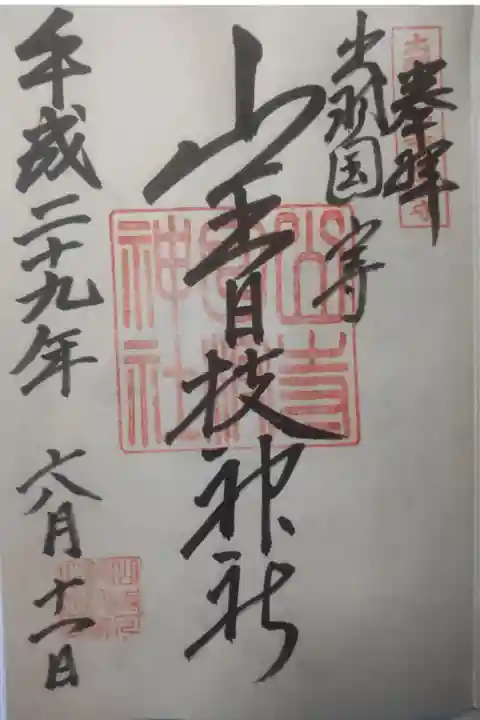 奉拝
出羽国 山寺
山王日枝神社
平成二十九年 六月十一日
山寺
日枝
神社